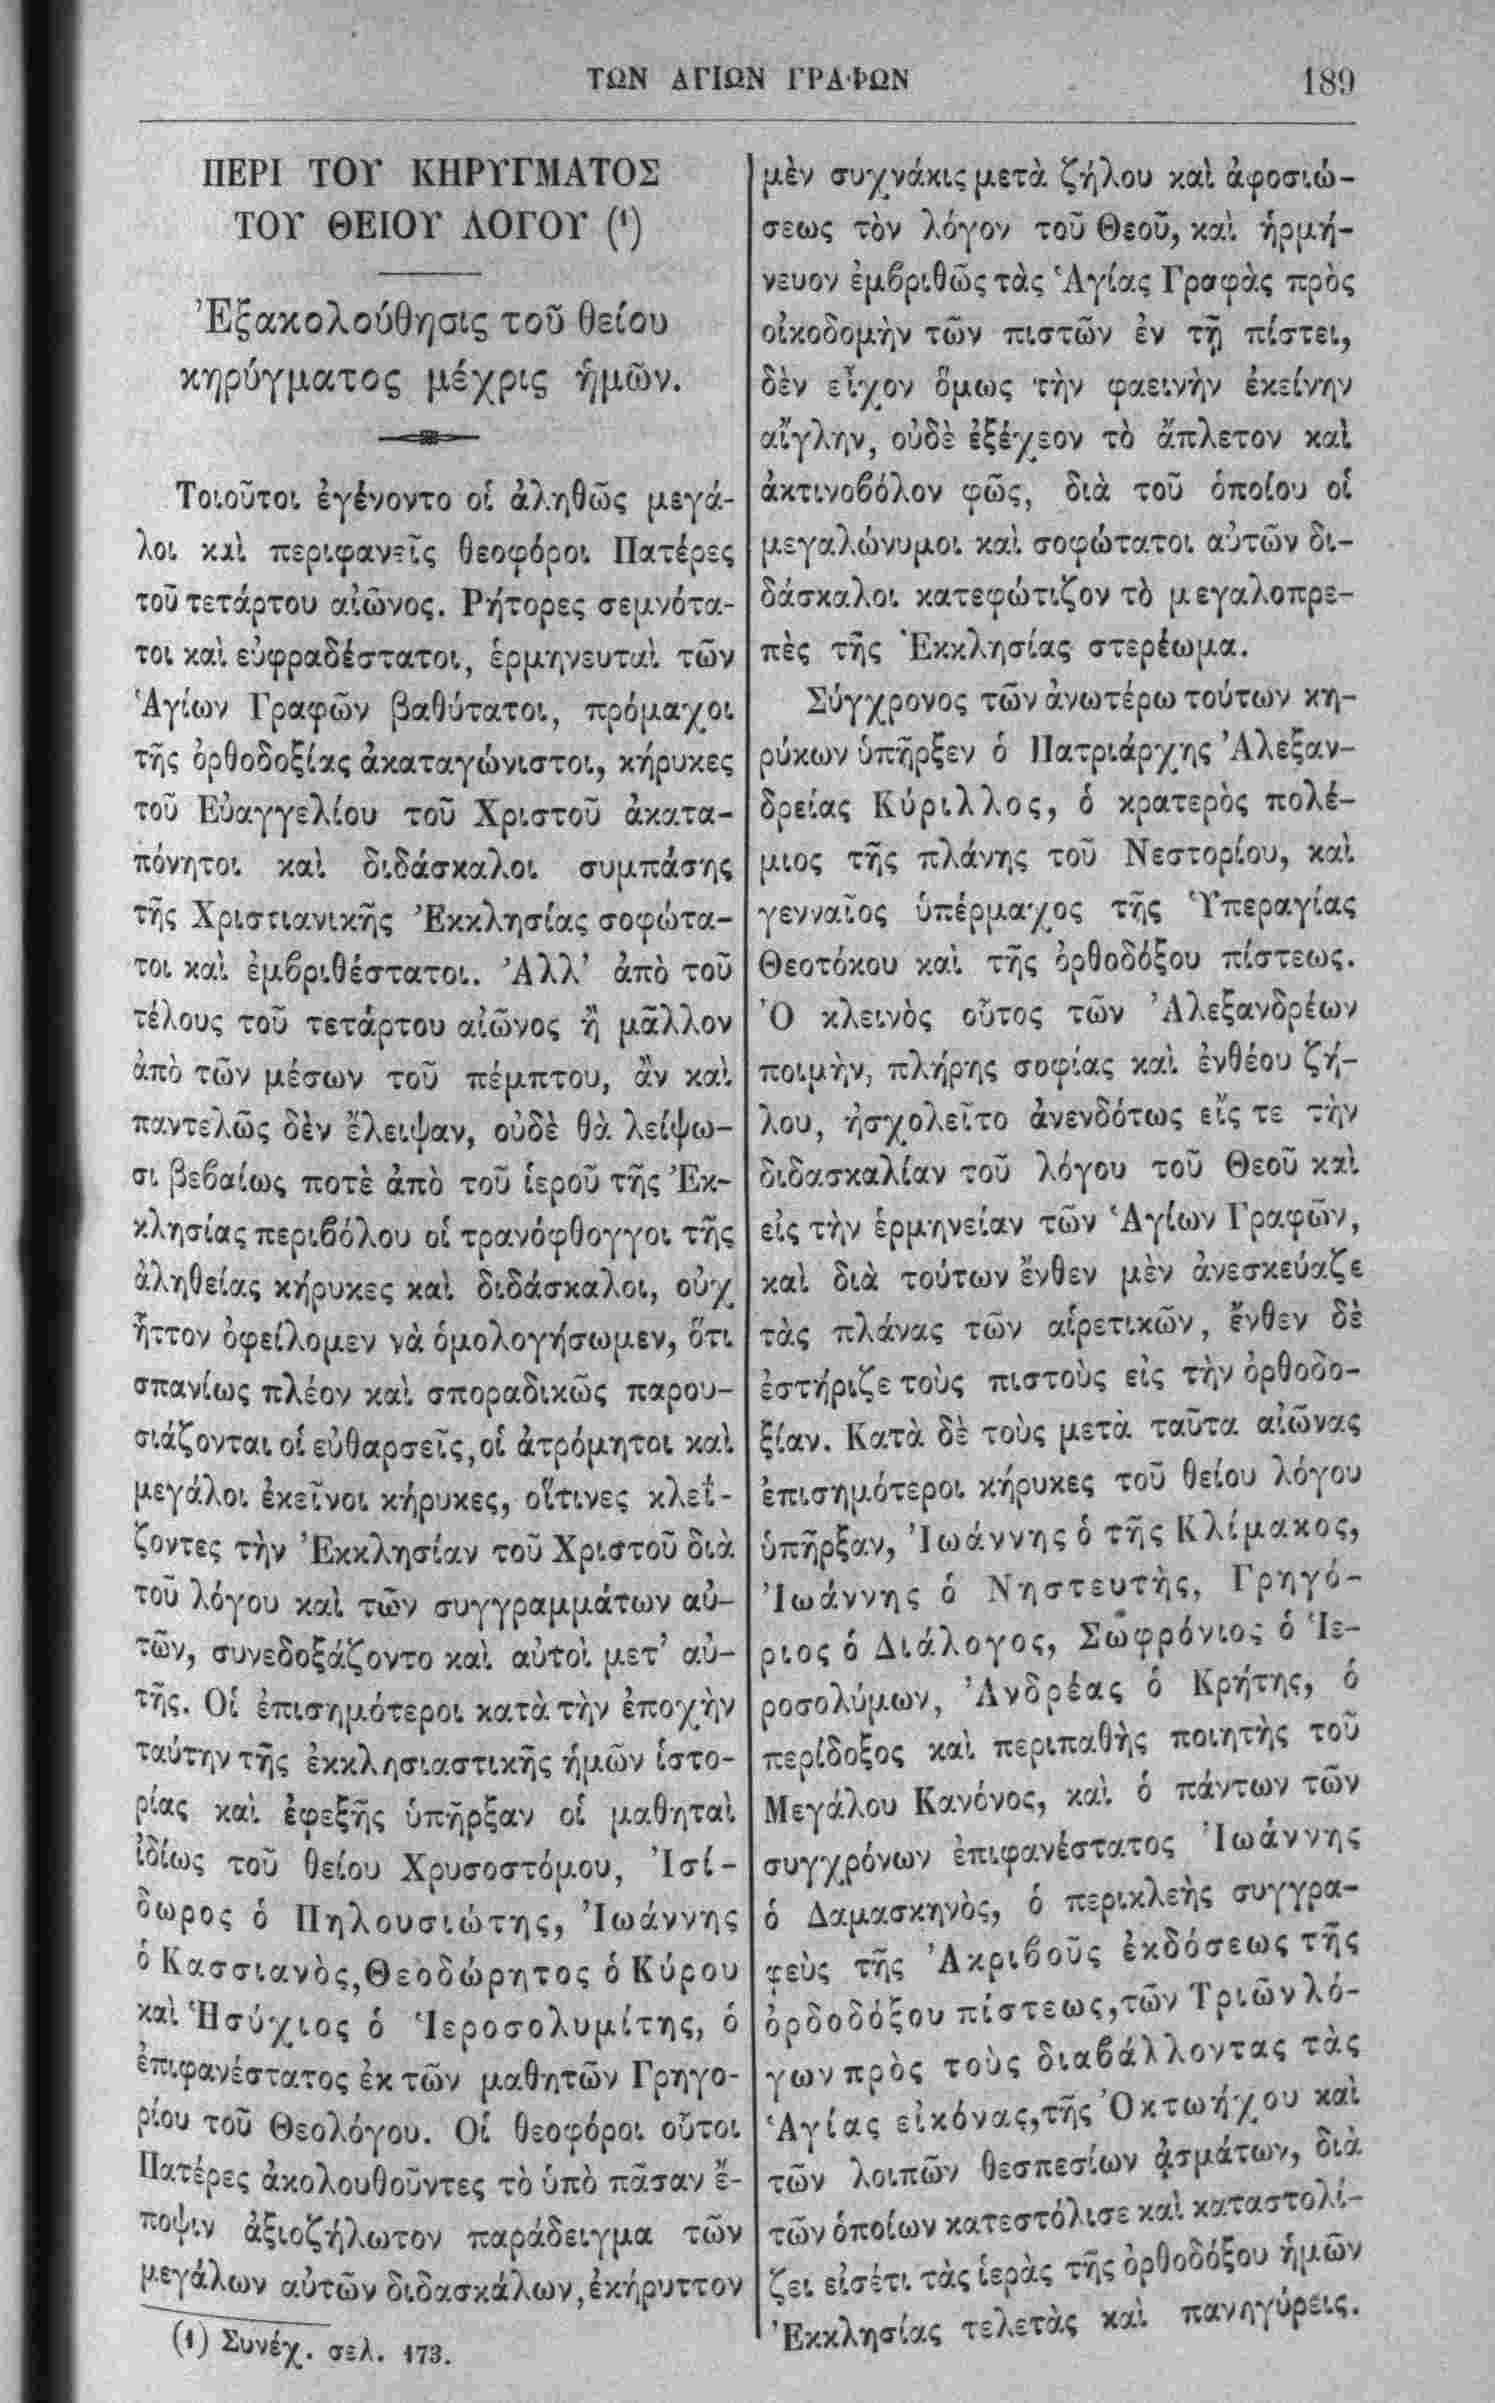 ΤΩΝ ΑΓΙΩΝ ΓΡΑΦΩΝ 189
ΠΕΡΙ ΤΟΥ ΚΗΡΥΓΜΑΤΟΣ
ΤΟΥ ΘΕΙΟΥ ΛΟΓΟΥ (¹)
Ἐξακολούθησις τοῦ θείου
κηρύγματος μέχρις ἡμῶν.
Τοιοῦτοι ἐγένοντο οἱ ἀληθῶς μεγά-
λοι καὶ περιφανεῖς θεοφόροι Πατέρες
τοῦ τετάρτου αἰῶνος. Ρήτορες σεμνότα-
τοι καὶ εὐφραδέστατοι, ἑρμηνευταὶ τῶν
Ἁγίων Γραφῶν βαθύτατοι, πρόμαχοι
τῆς ὀρθοδοξίας ἀκαταγώνιστοι, κήρυκες
τοῦ Εὐαγγελίου τοῦ Χριστοῦ ἀκατα-
πόνητοι καὶ διδάσκαλοι συμπάσης
τῆς Χριστιανικῆς Ἐκκλησίας σοφώτα-
τοι καὶ ἐμβριθέστατοι. Ἀλλ' ἀπὸ τοῦ
τέλους τοῦ τετάρτου αἰῶνος ἢ μᾶλλον
ἀπὸ τῶν μέσων τοῦ πέμπτου, ἂν καὶ
παντελῶς δὲν ἔλειψαν, οὐδὲ θὰ λείψω-
σι βεβαίως ποτὲ ἀπὸ τοῦ ἱεροῦ τῆς Ἐκ-
κλησίας περιβόλου οἱ τρανόφθογγοι τῆς
ἀληθείας κήρυκες καὶ διδάσκαλοι, οὐχ
ἧττον ὀφείλομεν νὰ ὁμολογήσωμεν, ὅτι
σπανίως πλέον καὶ σποραδικῶς παρου-
σιάζονται οἱ εὐθαρσεῖς, οἱ ἀτρόμητοι καὶ
μεγάλοι ἐκεῖνοι κήρυκες, οἵτινες κλεΐ-
ζοντες τὴν Ἐκκλησίαν τοῦ Χριστοῦ διὰ
τοῦ λόγου καὶ τῶν συγγραμμάτων αὐ-
τῶν, συνεδοξάζοντο καὶ αὐτοὶ μετ' αὐ-
τῆς. Οἱ ἐπισημότεροι κατὰ τὴν ἐποχὴν
ταύτην τῆς ἐκκλησιαστικῆς ἡμῶν ἱστο-
ρίας καὶ ἐφεξῆς ὑπῆρξαν οἱ μαθηταὶ
ἰδίως τοῦ θείου Χρυσοστόμου, Ἰσί-
δωρος ὁ Πηλουσιώτης, Ἰωάννης
ὁ Κασσιανὸς, Θεοδώρητος ὁ Κύρου
καὶ Ἡσύχιος ὁ Ἱεροσολυμίτης, ὁ
ἐπιφανέστατος ἐκ τῶν μαθητῶν Γρηγο-
ρίου τοῦ Θεολόγου. Οἱ θεοφόροι οὗτοι
Πατέρες ἀκολουθοῦντες τὸ ὑπὸ πᾶσαν ἔ-
ποψιν ἀξιοζήλωτον παράδειγμα τῶν
μεγάλων αὐτῶν διδασκάλων, ἐκήρυττον
(1) Συνέχ. σελ. 173.
μὲν συχνάκις μετὰ ζήλου καὶ ἀφοσιώ-
σεως τὸν λόγον τοῦ Θεοῦ, καὶ ἡρμή-
νευον ἐμβριθῶς τὰς Ἁγίας Γραφὰς πρὸς
οἰκοδομὴν τῶν πιστῶν ἐν τῇ πίστει,
δὲν εἶχον ὅμως τὴν φαεινὴν ἐκείνην
αἴγλην, οὐδὲ ἐξέχεον τὸ ἄπλετον καὶ
ἀκτινοβόλον φῶς, διὰ τοῦ ὁποίου οἱ
μεγαλώνυμοι καὶ σοφώτατοι αὐτῶν δι-
δάσκαλοι κατεφώτιζον τὸ μεγαλοπρε-
πὲς τῆς Ἐκκλησίας στερέωμα.
Σύγχρονος τῶν ἀνωτέρω τούτων κη-
ρύκων ὑπῆρξεν ὁ Πατριάρχης Ἀλεξαν-
δρείας Κύριλλος, ὁ κρατερὸς πολέ-
μιος τῆς πλάνης τοῦ Νεστορίου, καὶ
γενναῖος ὑπέρμαχος τῆς Ὑπεραγίας
Θεοτόκου καὶ τῆς ὀρθοδόξου πίστεως.
Ὁ κλεινὸς οὗτος τῶν Ἀλεξανδρέων
ποιμὴν, πλήρης σοφίας καὶ ἐνθέου ζή-
λου, ἠσχολεῖτο ἀνενδότως εἴς τε τὴν
διδασκαλίαν τοῦ λόγου τοῦ Θεοῦ καὶ
εἰς τὴν ἑρμηνείαν τῶν Ἁγίων Γραφῶν,
καὶ διὰ τούτων ἔνθεν μὲν ἀνεσκεύαζε
τὰς πλάνας τῶν αἱρετικῶν, ἔνθεν δὲ
ἐστήριζε τοὺς πιστοὺς εἰς τὴν ὀρθοδο-
ξίαν. Κατὰ δὲ τοὺς μετὰ ταῦτα αἰῶνας
ἐπισημότεροι κήρυκες τοῦ θείου λόγου
ὑπῆρξαν, Ἰωάννης ὁ τῆς Κλίμακος,
Ἰωάννης ὁ Νηστευτὴς, Γρηγό-
ριος ὁ Διάλογος, Σωφρόνιος ὁ Ἱε-
ροσολύμων, Ἀνδρέας ὁ Κρήτης, ὁ
περίδοξος καὶ περιπαθὴς ποιητὴς τοῦ
Μεγάλου Κανόνος, καὶ ὁ πάντων τῶν
συγχρόνων ἐπιφανέστατος Ἰωάννης
ὁ Δαμασκηνὸς, ὁ περικλεὴς συγγρα-
φεὺς τῆς Ἀκριβοῦς ἐκδόσεως τῆς
ὀρδοδόξου πίστεως, τῶν Τριῶν λό-
γων πρὸς τοὺς διαβάλλοντας τὰς
Ἁγίας εἰκόνας, τῆς Ὀκτωήχου καὶ
τῶν λοιπῶν θεσπεσίων ᾀσμάτων, διὰ
τῶν ὁποίων κατεστόλισε καὶ καταστολί-
ζει εἰσέτι τὰς ἱερὰς τῆς ὀρθοδόξου ἡμῶν
Ἐκκλησίας τελετὰς καὶ πανηγύρεις.